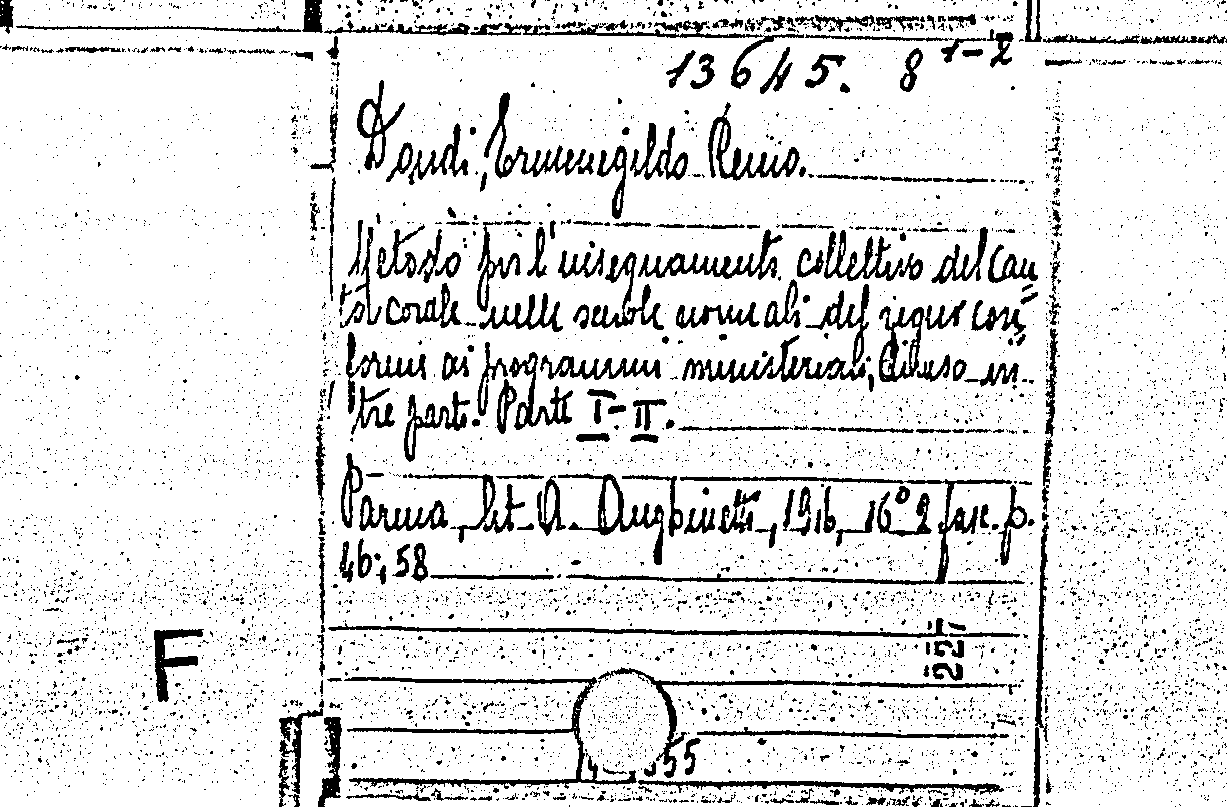 13645. 8 1-2
Dondi, Ermenegildo Remo.
Metodo per l'insegnamento collettivo del Can=
to corale nelle scuole normali del regno con=
forme ai programmi ministeriali, diviso in
tre parti. Parte I-II.
Parma, lit. A. Anghinetti, 1916, 16° 2 fasc. p.
46; 58
227
F
55